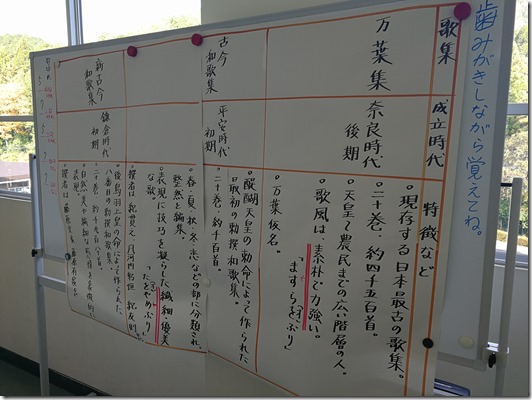 歯みがきしながら覚えてね。
歌集
成立時代
特徴など
万葉集
奈良時代
後期
・現存する日本最古の歌集。
・二十巻、約四千五百首。
・天皇~農民までの広い階層の人。
・歌風は、素朴で力強い。
「ますらを(お)ぶり」
・万葉仮名。
古今
和歌集
平安時代
初期
・醍醐天皇の勅命によって作られた
日最初の勅撰和歌集。
・二十巻、約千百首。
・春・夏・秋・冬・恋などの部に分類され、
整然と編集
・表現に技巧を凝らした繊細優美
な歌。
「たをやめぶり」
・撰者は、紀貫之
紀友則
新古今
和歌集
鎌倉時代
初期
・後鳥羽上皇の命によって作られた
八番目の勅撰和歌集。